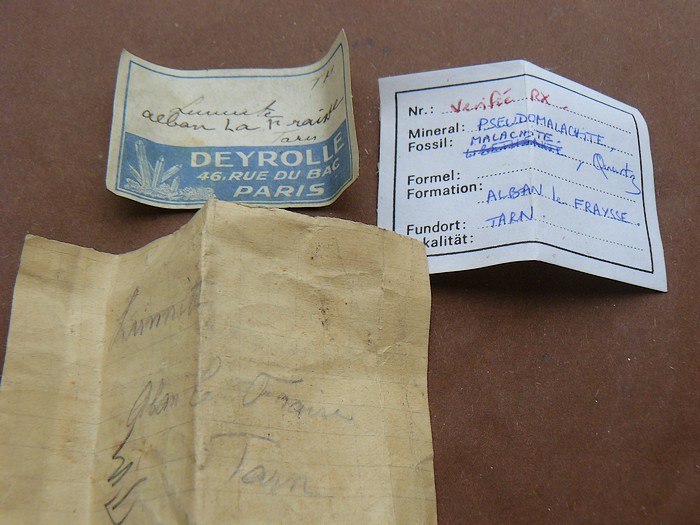 Lunnite
alban La Fraisse
Tarn
DEYROLLE
46. RUE DU BAC
PARIS
Nr.: Verifié RX
Mineral: PSEUDOMALACHITE,
Fossil: MALACHITE.
, Quartz
Formel:
Formation:
ALBAN le FRAYSSE.
Fundort: TARN
kalität:
Lunnite
Alban La Fraisse
Tarn